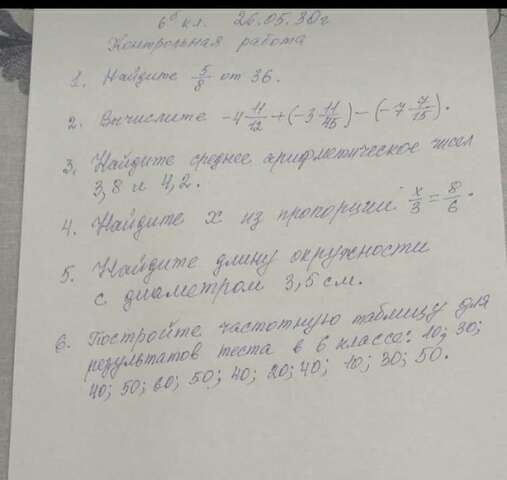 6ᵃ кл. 26.05.20г
Контрольная работа
1. Найдите 5/8 от 36.
2. Вычислите -4 11/12 + (-3 11/45) - (-7 7/15).
3. Найдите среднее арифметическое чисел
3,8 и 4,2.
4. Найдите x из пропорции x/3 = 8/6.
5. Найдите длину окружности
с диаметром 3,5 см.
6. Постройте частотную таблицу для
результатов теста в 6 классе: 10; 30;
40; 50; 60; 50; 40; 20; 40; 10; 30; 50.